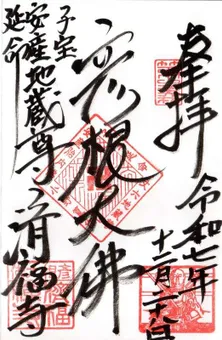 奉拝
令和七年
十二月二十日
彦根大佛
子宝
安産
延命
地蔵尊
済福寺